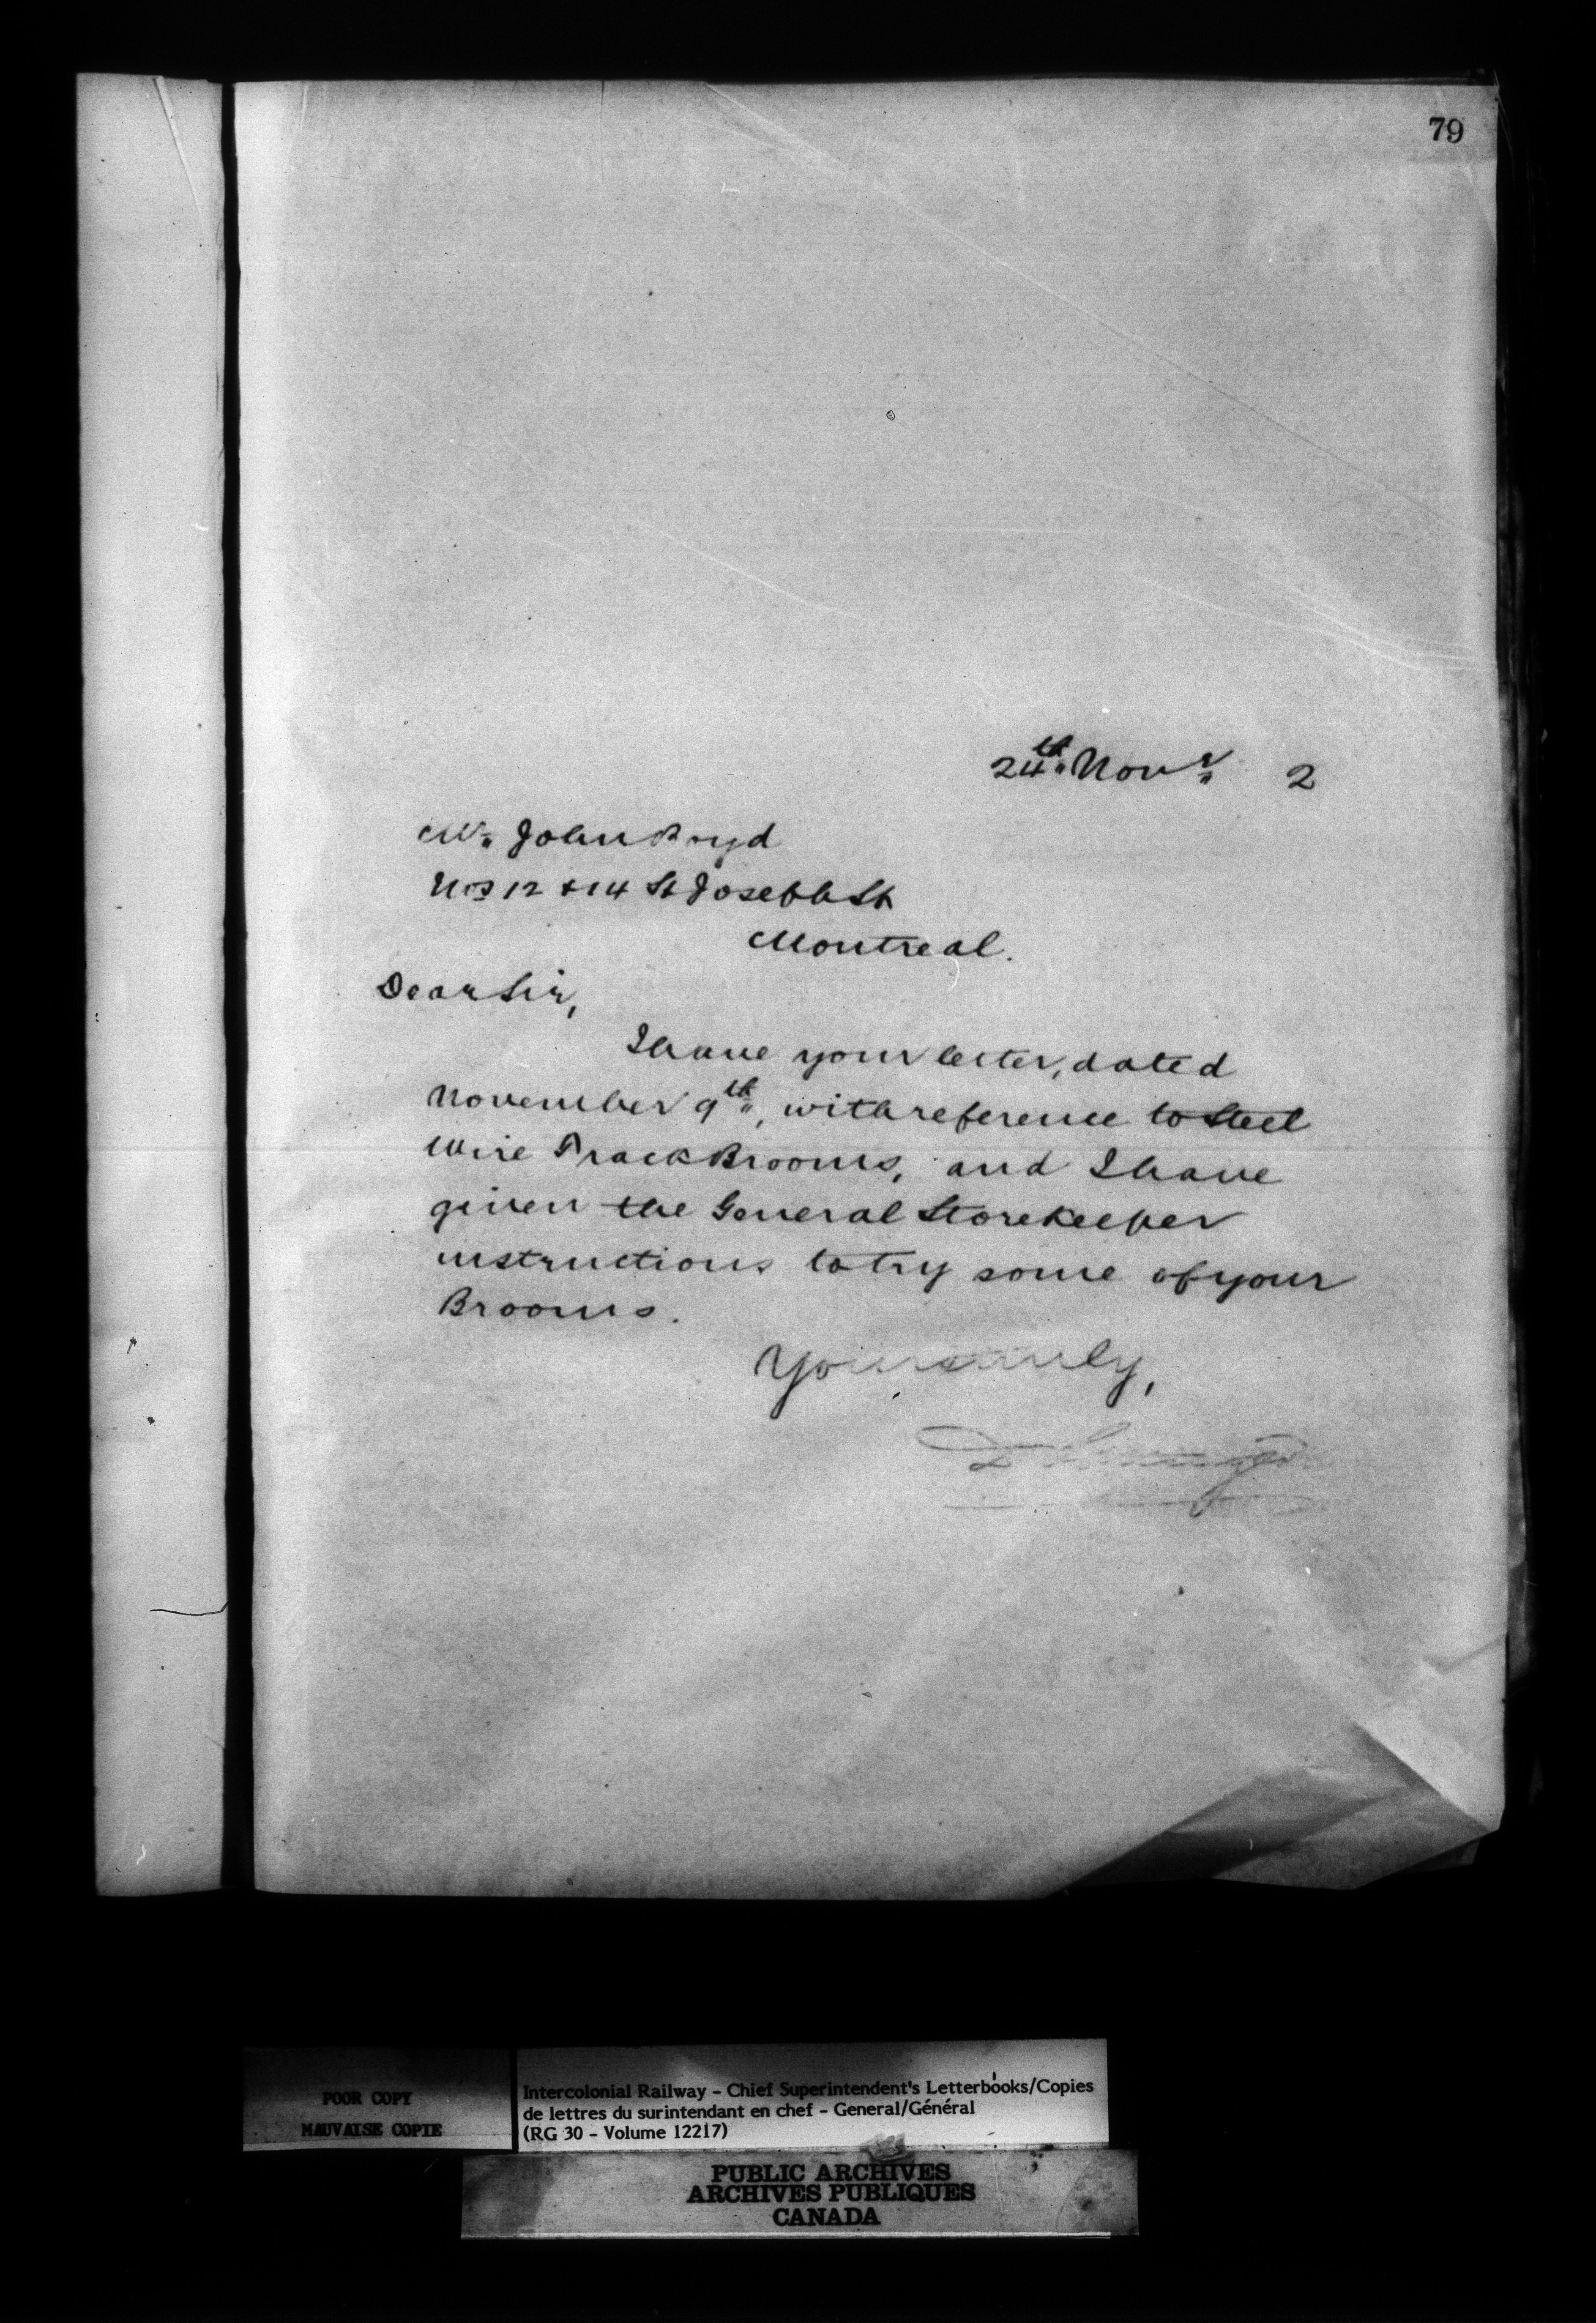 79
24th Novr 2
Mr John Boyd
Nos 12 & 14 St Joseph St
Montreal.
Dear Sir,
I have your letter, dated
November 9th, with reference to Steel
Wire Track Brooms, and I have
given the General Storekeeper
instructions to try some of your
Brooms.
Yours truly,
POOR COPY
MAUVAISE COPIE
Intercolonial Railway - Chief Superintendent's Letterbooks/Copies
de lettres du surintendant en chef - General/Général
(RG 30 - Volume 12217)
PUBLIC ARCHIVES
ARCHIVES PUBLIQUES
CANADA